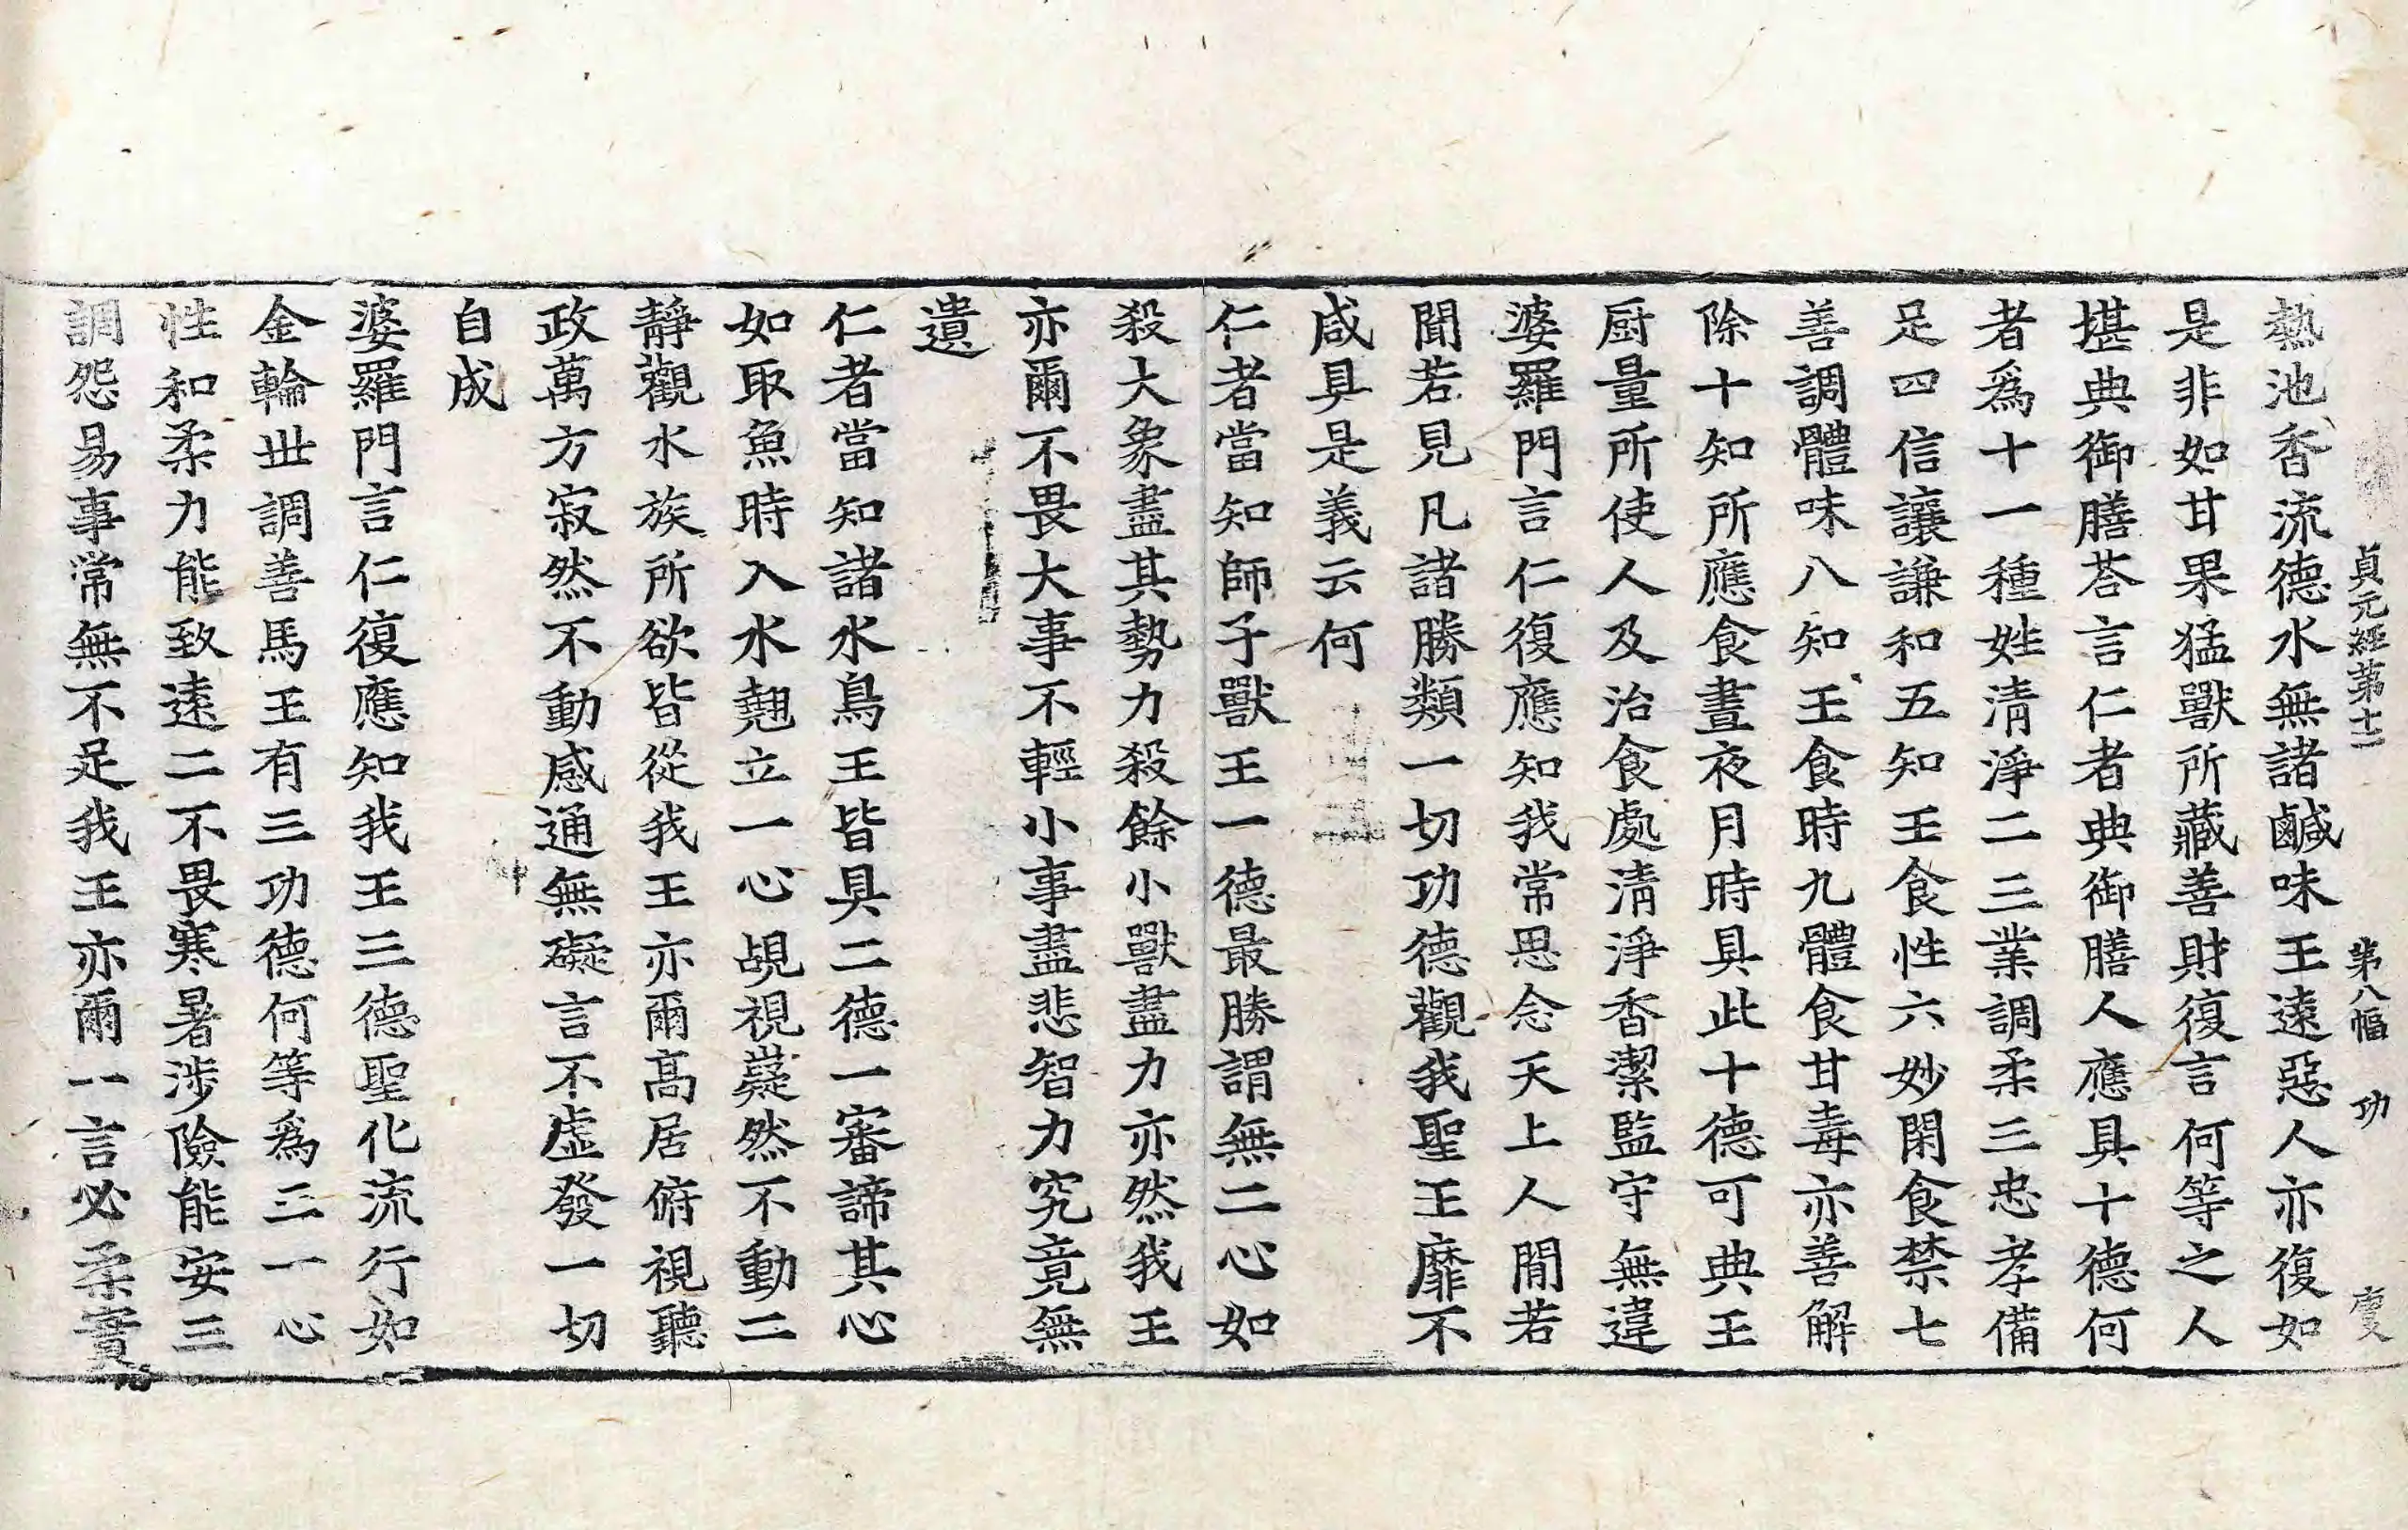 貞元經第十二 第八幅 功 虔
熱池香流德水無諸鹹味王遠惡人亦復如
是非如甘果猛獸所藏善財復言何等之人
堪典御膳荅言仁者典御膳人應具十德何
者爲十一種姓清淨二三業調柔三忠孝備
足四信讓謙和五知王食性六妙閑食禁七
善調體味八知王食時九體食甘毒亦善解
除十知所應食晝夜月時具此十德可典王
厨量所使人及治食處清淨香潔監守無違
婆羅門言仁復應知我常思念天上人間若
聞若見凡諸勝類一切功德觀我聖王靡不
咸具是義云何
仁者當知師子獸王一德最勝謂無二心如
殺大象盡其勢力殺餘小獸盡力亦然我王
亦爾不畏大事不輕小事盡悲智力究竟無
遺
仁者當知諸水鳥王皆具二德一審諦其心
如取魚時入水翹立一心覘視嶷然不動二
靜觀水族所欲皆從我王亦爾高居俯視聽
政萬方寂然不動感通無礙言不虛發一切
自成
婆羅門言仁復應知我王三德聖化流行如
金輪世調善馬王有三功德何等爲三一心
性和柔力能致遠二不畏寒暑涉險能安三
調怨易事常無不足我王亦爾一言必柔實